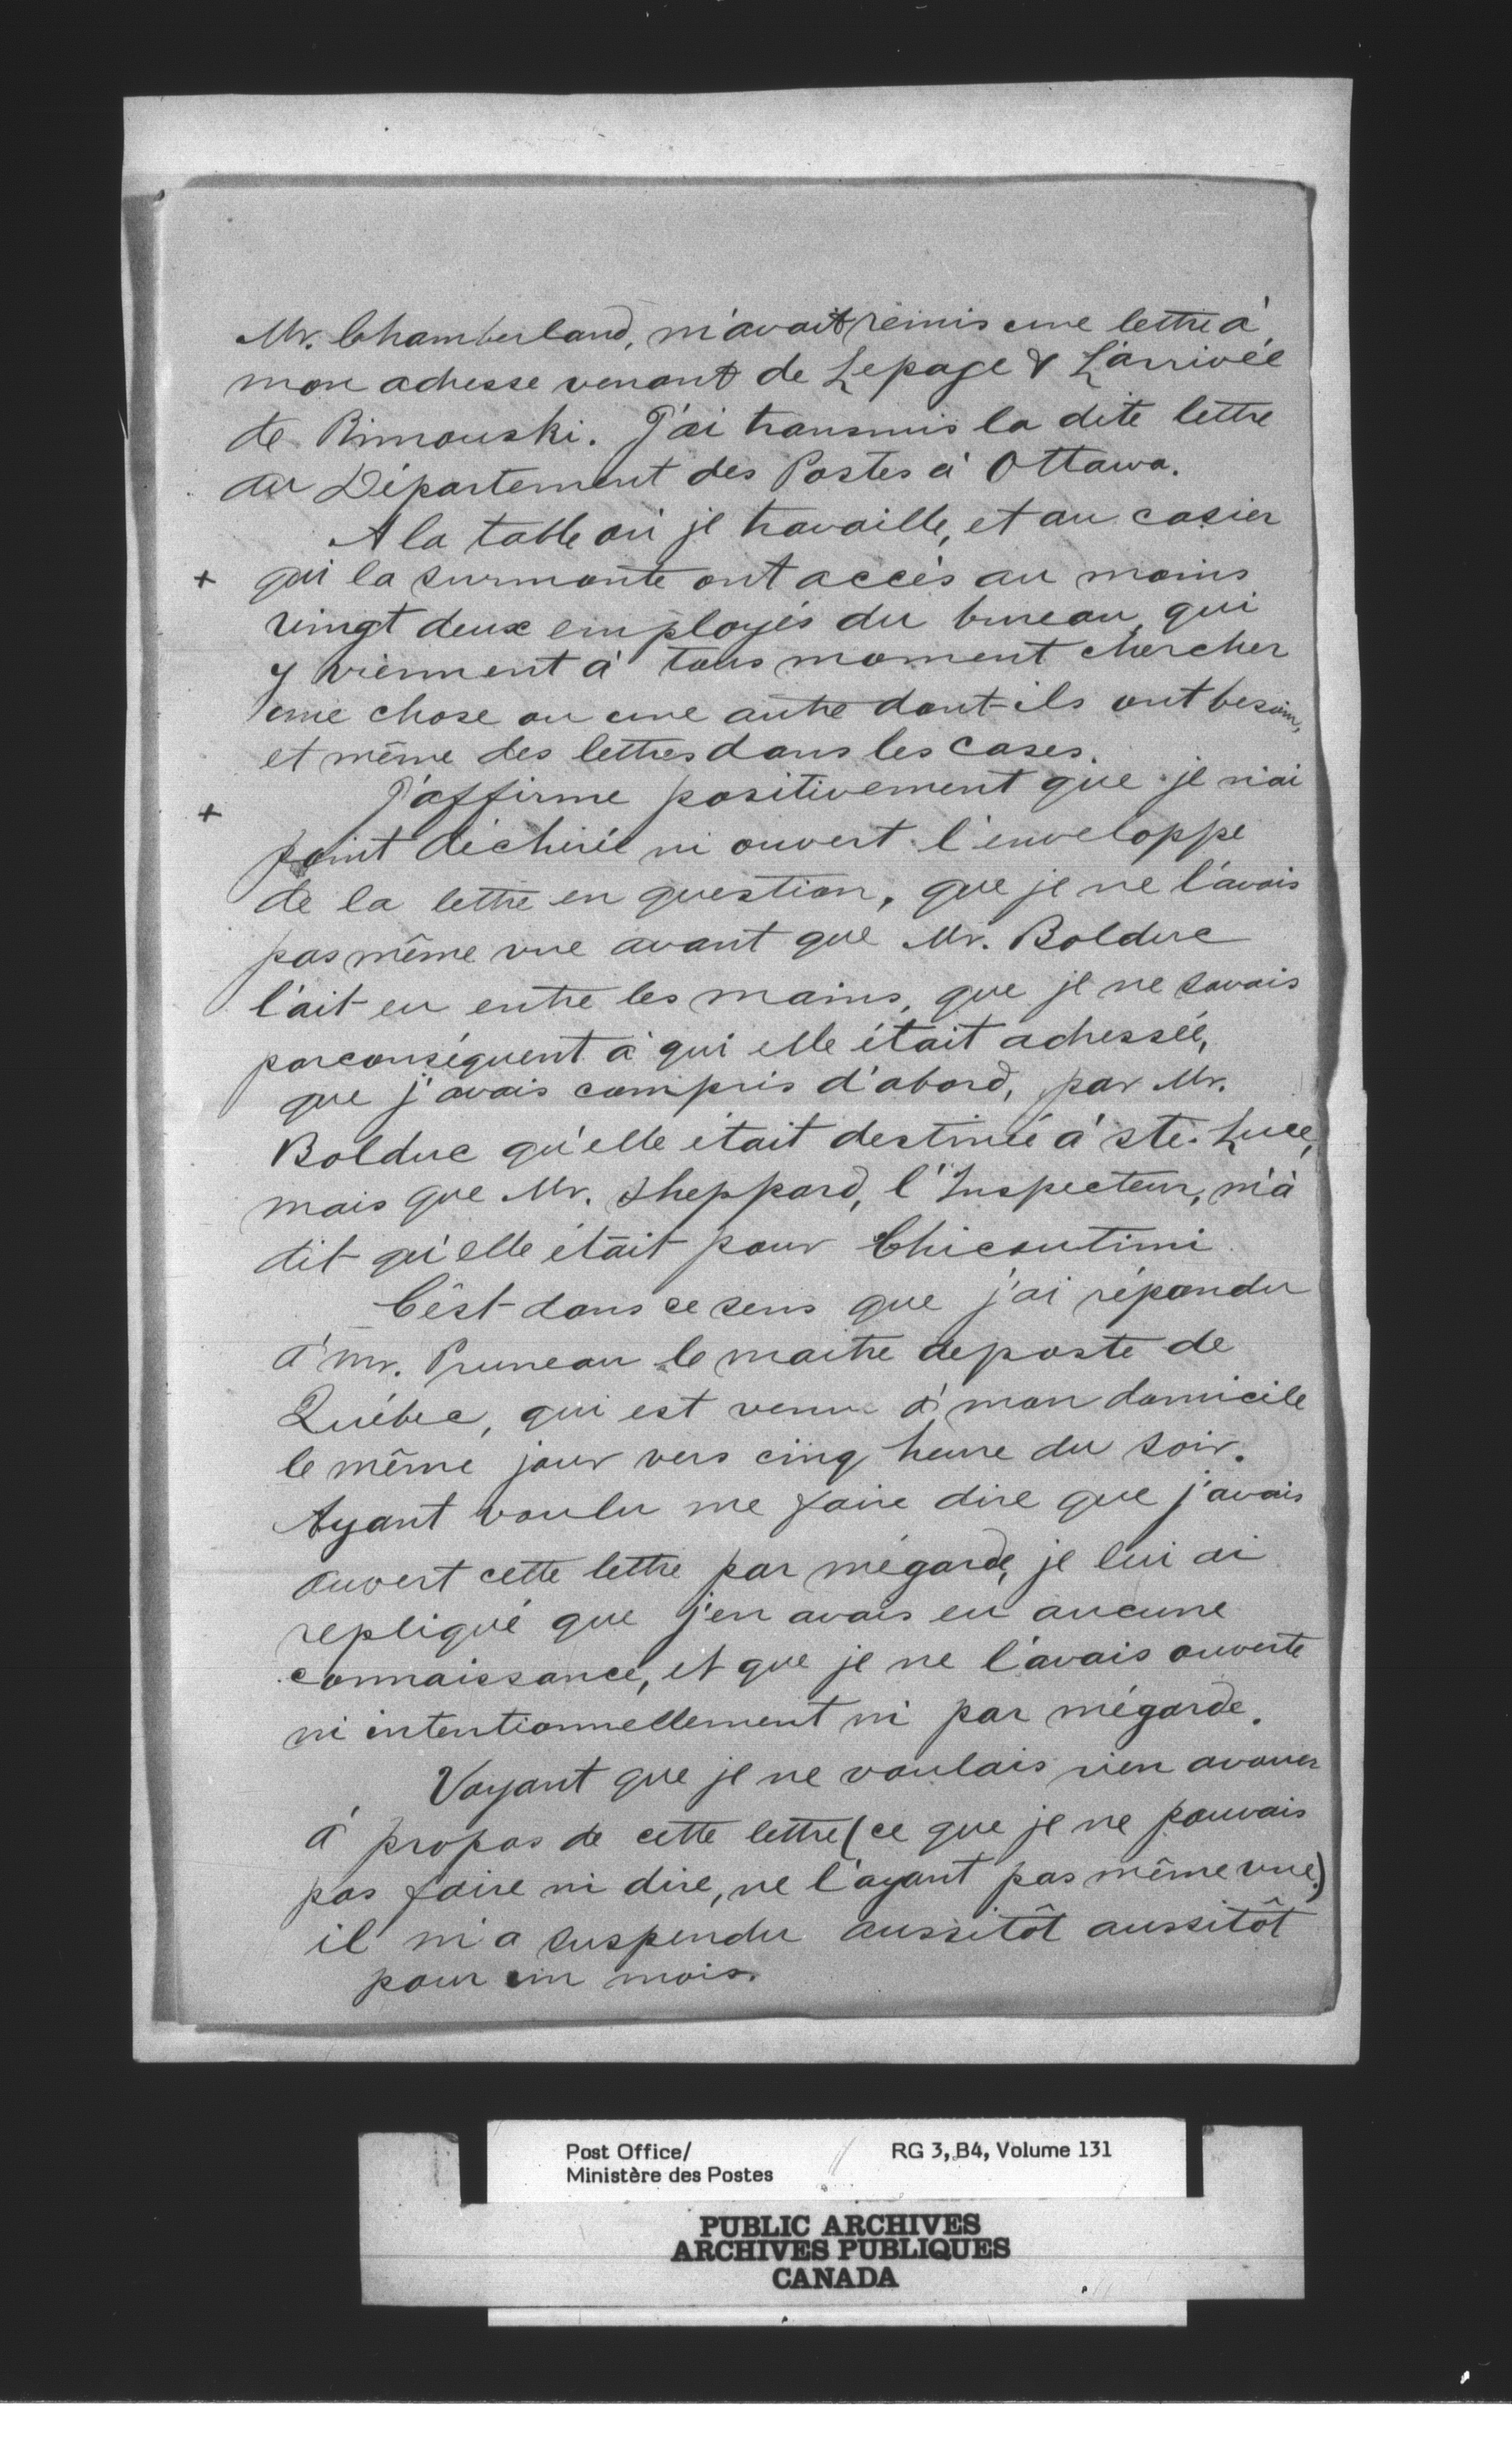 Mr. Chamberland, m'avait remis une lettre à
mon adresse venant de Lepage & L'arrivée
de Rimouski. J'ai transmis la dite lettre
au Département des Postes à Ottawa.
A la table où je travaille, et au casier
+ qui la surmonte ont accès au moins
vingt deux employés du bureau, qui
y viennent à tous moment chercher
une chose ou une autre dont ils ont besoin,
et même des lettres dans les cases.
+ J'affirme positivement que je n'ai
point déchirée ni ouvert l'enveloppe
de la lettre en question, que je ne l'avais
pas même vue avant que Mr. Bolduc
l'ait eu entre les mains, que je ne savais
parconséquent à qui elle était adressée,
que j'avais compris d'abord, par Mr.
Bolduc qu'elle était destinée à Ste. Luce,
mais que Mr. Sheppard, l'Inspecteur, m'à
dit qu'elle était pour Chicoutimi
C'est dans ce sens que j'ai répondu
à Mr. Pruneau le maitre deposte de
Québec, qui est venu à mon domicile
le même jour vers cinq heure du soir.
Ayant voulu me faire dire que j'avais
ouvert cette lettre par mégarde, je lui ai
repliqué que j'en avais eu aucune
connaissance, et que je ne l'avais ouverte
ni intentionnellement ni par mégarde.
Voyant que je ne voulais rien avouer
à propos de cette lettre (ce que je ne pouvais
pas faire ni dire, ne l'ayant pas même vue.)
il m'a suspendu aussitôt aussitôt
pour un mois.
Post Office/ RG 3, B4, Volume 131
Ministère des Postes
PUBLIC ARCHIVES
ARCHIVES PUBLIQUES
CANADA